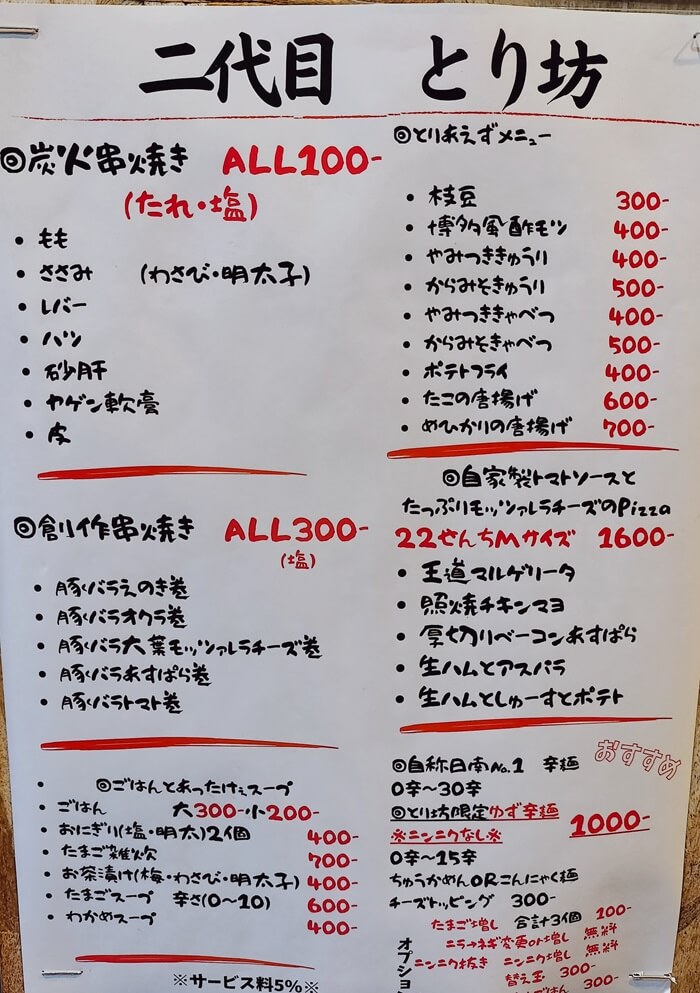 二代目 とり坊
◎炭火串焼き ALL100-
(たれ・塩)
・もも
・ささみ (わさび・明太子)
・レバー
・ハツ
・砂肝
・ヤゲン軟膏
・皮
◎創作串焼き ALL300-
(塩)
・豚バラえのき巻
・豚バラオクラ巻
・豚バラ大葉モッツァレラチーズ巻
・豚バラあすぱら巻
・豚バラトマト巻
・ ◎ごはんとあったけぇスープ
・ごはん 大300-小200-
・おにぎり(塩・明太)2個 400-
・たまご雑炊 700-
・お茶漬け(梅・わさび・明太子) 400-
・たまごスープ 辛さ(0～10) 600-
・わかめスープ 400-
※サービス料5%※
◎とりあえずメニュー
・枝豆 300-
・博多風酢モツ 400-
・やみつききゅうり 400-
・からみそきゅうり 500-
・やみつききゃべつ 400-
・からみそきゃべつ 500-
・ポテトフライ 400-
・たこの唐揚げ 600-
・めひかりの唐揚げ 700-
◎自家製トマトソースと
たっぷりモッツァレラチーズのPizza
22せんちMサイズ 1600-
・王道マルゲリータ
・照焼チキンマヨ
・厚切りベーコンあすぱら
・生ハムとアスパラ
・生ハムとしゅーすとポテト
◎自称日南No.1 辛麺 おすすめ
0辛～30辛
◎とり坊限定ゆず辛麺
※ニンニクなし※ 1000-
0辛～15辛
ちゅうかめんORこんにゃく麺
チーズトッピング 300-
オプション
たまご増し 合計3個 100-
ニラ→ネギ変更or増し 無料
ニンニク抜き ニンニク増し 無料
替え玉 300-
ごはん 300-